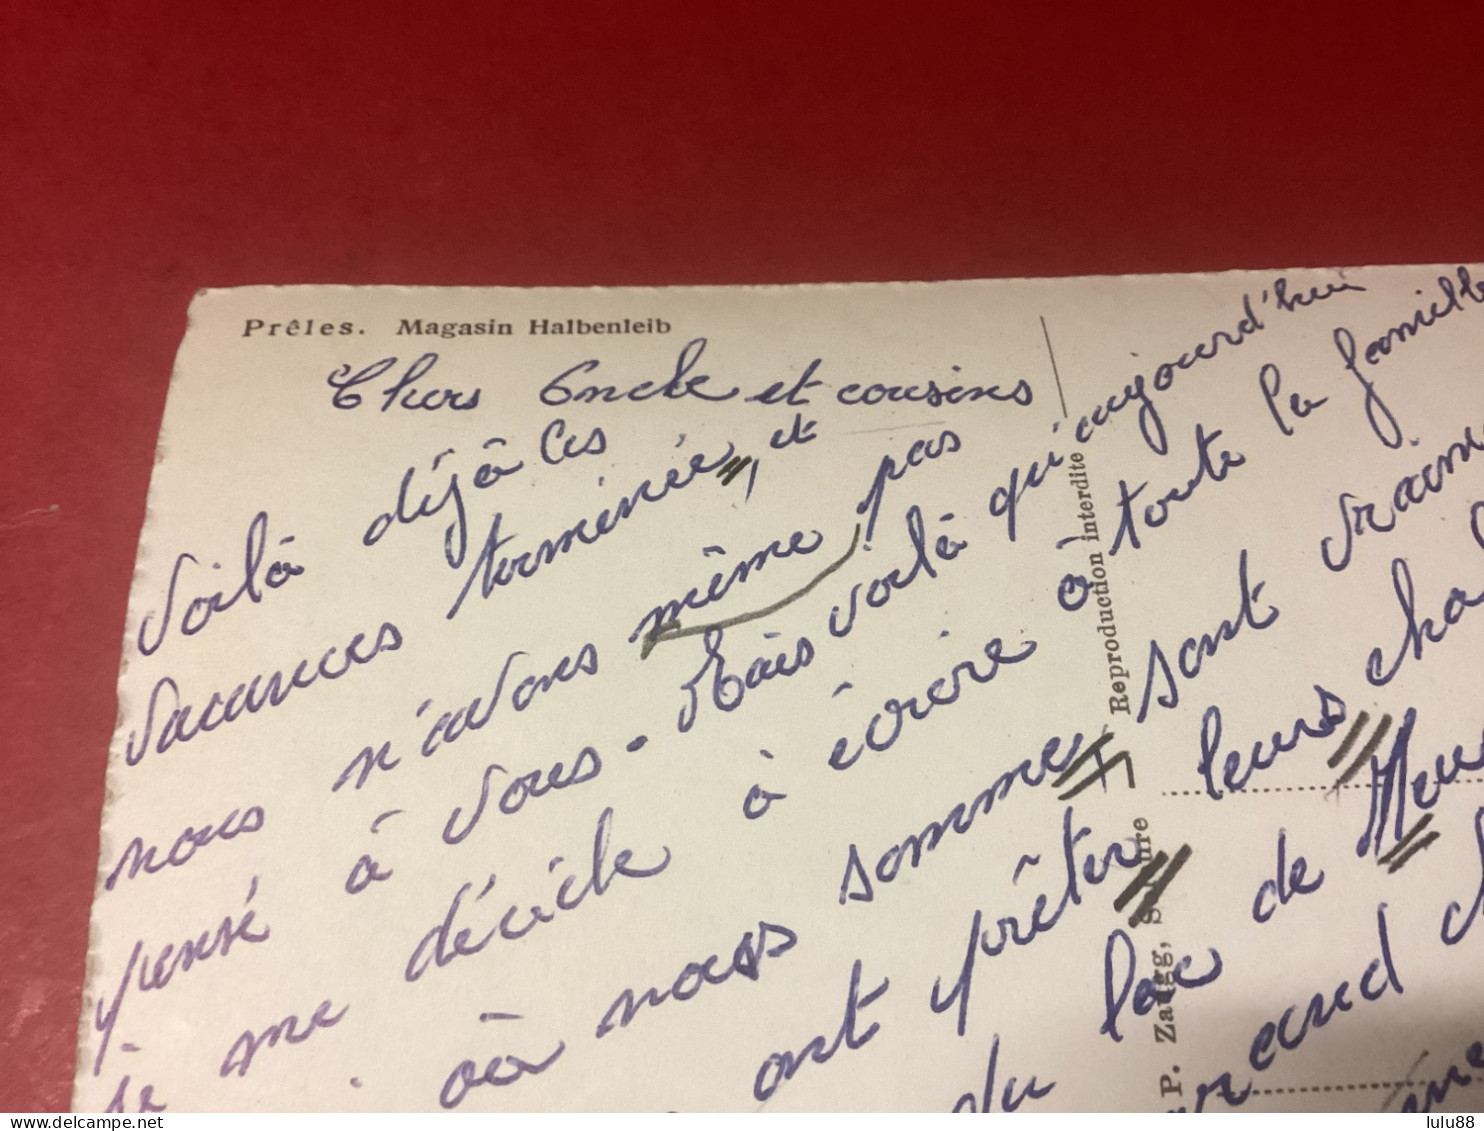 Prêles. Magasin Halbenleib
Chers Oncle et cousins
Voilà déjà les
vacances terminée, et
nous n'avons même pas
pensé à vous. Mais voilà qu'aujourd'hui
je me décide à écrire à toute la famille
où nous sommes sont vraim
ont prêter leurs chal
du lac de
Reproduction interdite
P. Zaugg,
lulu88